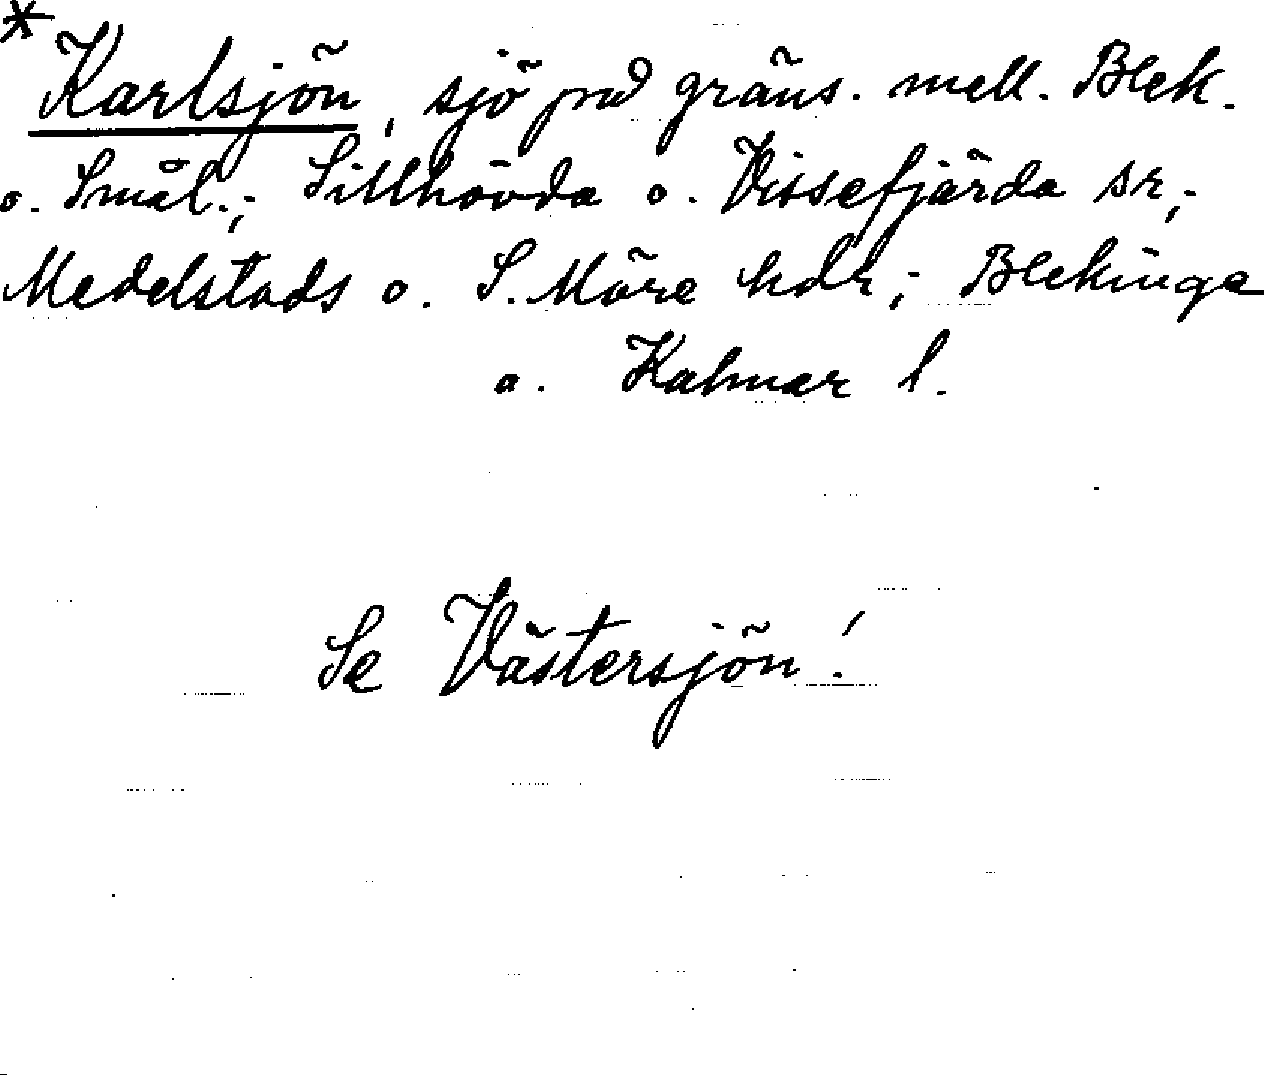 * Karlsjön, sjö på gräns. mell. Blek.
o. Smål.; Sillhövda o. Vissefjärda sr;
Medelstads o. S. Möre hdr; Blekinge
o. Kalmar l.
Se Västersjön!